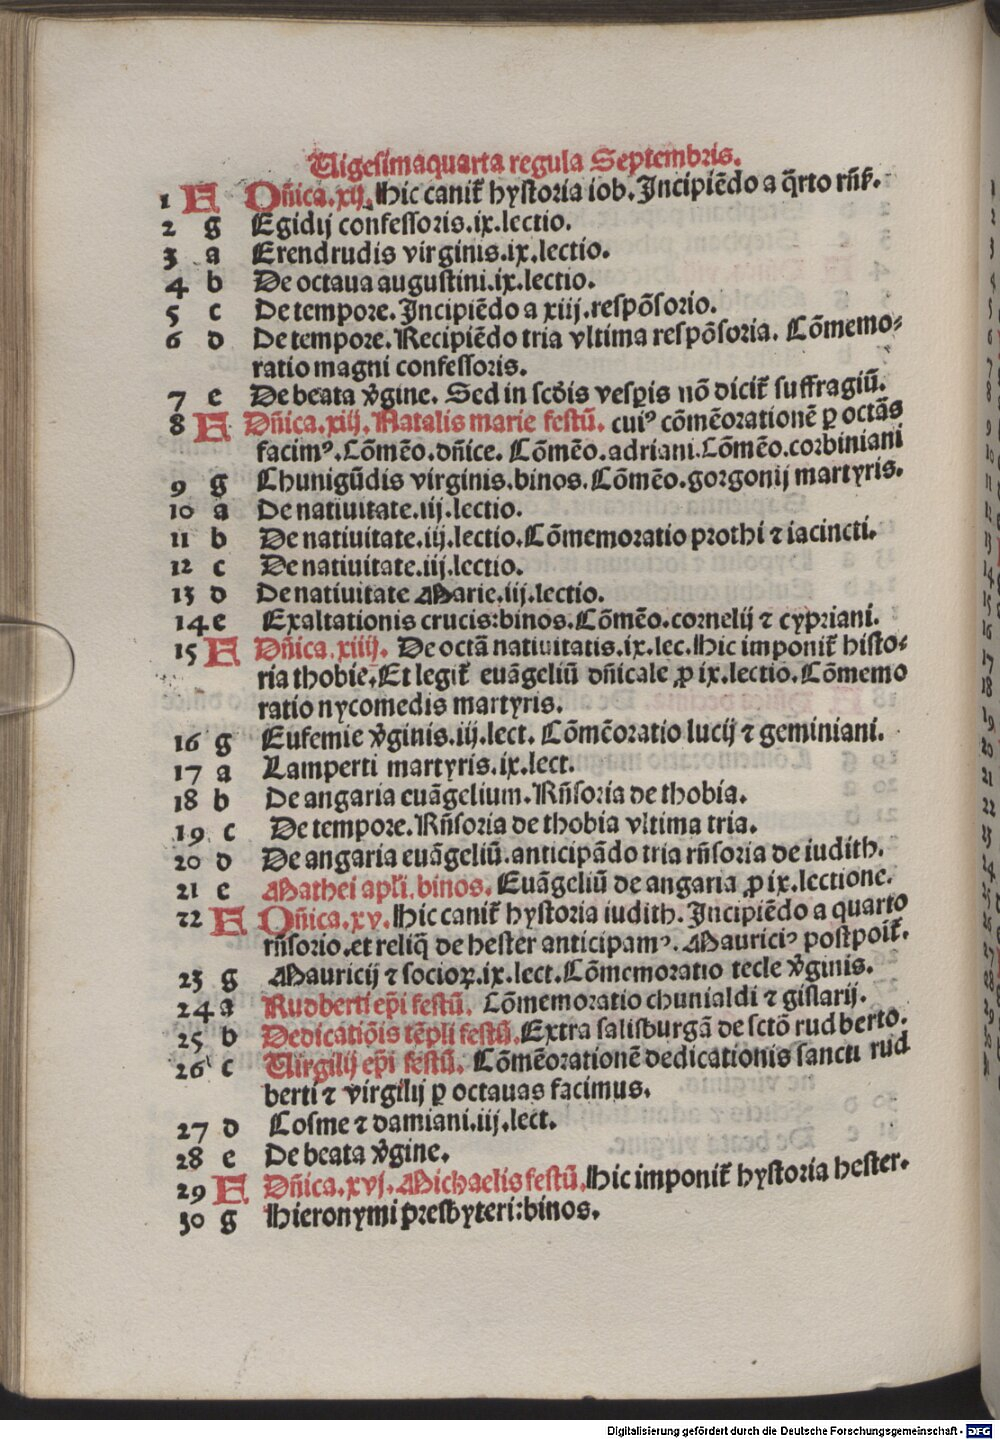 Uigesimaquarta regula Septembris.
1 F Dñica.xij. Hic canit᷑ hystoria iob. Incipiẽdo a q̃rto rñs̃.
2 g Egidij confessoris.ix.lectio.
3 a Erendrudis virginis.ix.lectio.
4 b De octaua augustini.ix.lectio.
5 c De tempore. Incipiẽdo a xiij.respõsorio.
6 d De tempore. Recipiẽdo tria vltima respõsoria. Cõmemo⸗
ratio magni confessoris.
7 e De beata v̾gine. Sed in scd̾is vesp̱is nõ dicit᷑ suffragiũ.
8 F Dñica.xiij. Natalis marie festũ. cui⁹ cõmẽorationẽ ꝑ octãs
facim⁹. Cõmẽo.dñice. Cõmẽo.adriani.Cõmẽo.corbiniani
9 g Chunigũdis virginis.binos.Cõmẽo.gorgonij martyris.
10 a De natiuitate.iij.lectio.
11 b De natiuitate.iij.lectio.Cõmemoratio prothi ⁊ iacincti.
12 c De natiuitate.iij.lectio.
13 d De natiuitate Marie.iij.lectio.
14 e Exaltationis crucis:binos.Cõmẽo.cornelij ⁊ cypriani.
15 F Dñica.xiiij. De octã natiuitatis.ix.lec.Hic imponit᷑ histo⸗
ria thobie.Et legit᷑ euãgeliũ dñicale ꝓ ix.lectio.Cõmemo
ratio nycomedis martyris.
16 g Eufemie v̾ginis.iij.lect. Cõmẽoratio lucij ⁊ geminiani.
17 a Lamperti martyris.ix.lect.
18 b De angaria euãgelium.Rñsoria de thobia.
19 c De tempore.Rñsoria de thobia vltima tria.
20 d De angaria euãgeliũ.anticipãdo tria rñsoria de iudith.
21 e Mathei apl̃i.binos. Euãgeliũ de angaria ꝓ ix.lectione.
22 F Dñica.xv. Hic canit᷑ hystoria iudith. Incipiẽdo a quarto
rñsorio.et reliq̃ de hester anticipam⁹. Maurici⁹ postpoit᷑.
23 g Mauricij ⁊ socioꝝ.ix.lect.Cõmemoratio tecle v̾ginis.
24 a Rudberti ep̃i festũ. Cõmemoratio chunialdi ⁊ gislarij.
25 b Dedicatiõis tẽpli festũ. Extra salisburgã de sctõ rudberto.
26 c Uirgilij ep̃i festũ. Cõmẽorationẽ dedicationis sancti rud
berti ⁊ virgilij ꝑ octauas facimus.
27 d Cosme ⁊ damiani.iij.lect.
28 e De beata v̾gine.
29 F Dñica.xvj. Michaelis festũ. Hic imponit᷑ hystoria hester.
30 g Hieronymi presbyteri:binos.
Digitalisierung gefördert durch die Deutsche Forschungsgemeinschaft - DFG